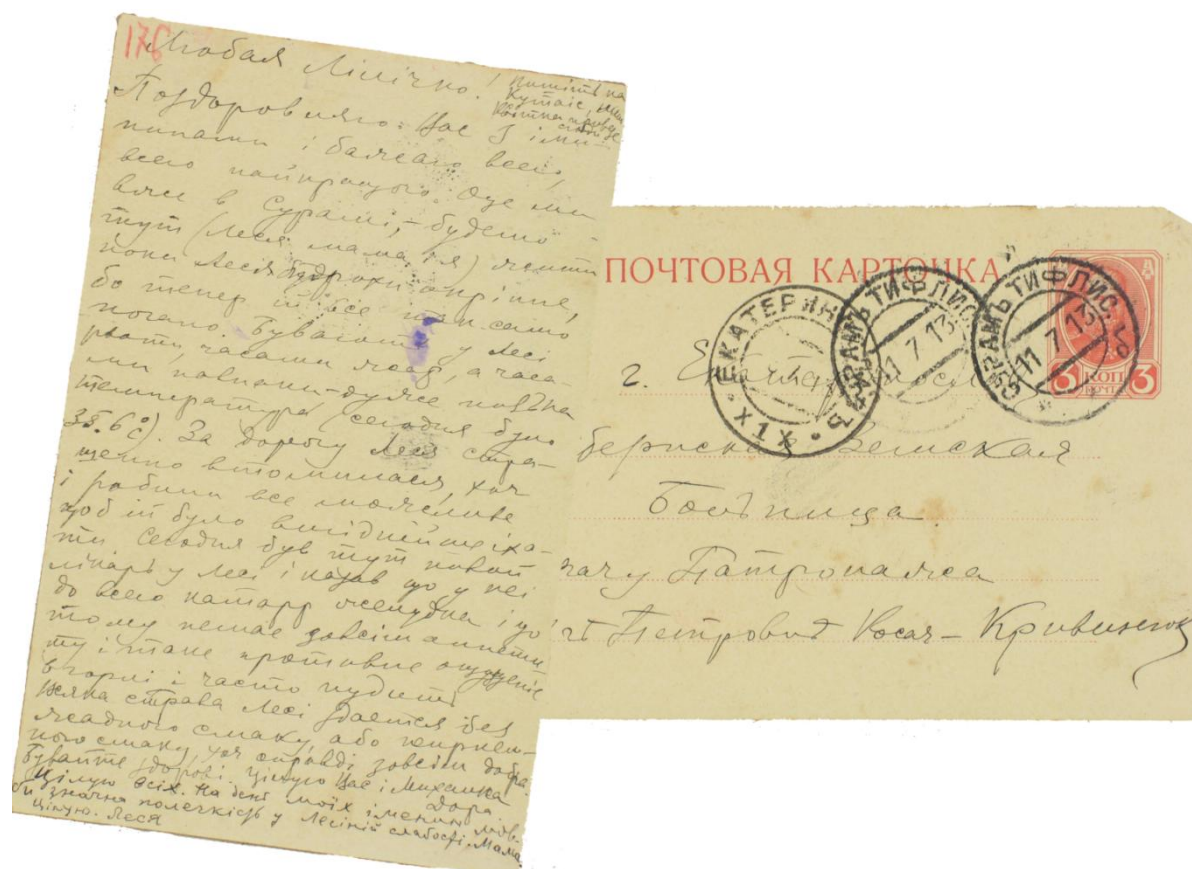 176
Любая Лілічко!
Пишіть на
Кутаіс,
Поздоровляю Вас з іми-
нинами і бажаю всего,
всего найкращого. Оце ми
вже в Сурамі, – будемо
тут (Леся мама і я) жити
поки Леся трохи окріпне,
бо тепер їй все так само
погано. Бувають у Лесі
часами жар, а часа-
ми, навпаки – дуже низька
температура (сегодня було
35.6°с). За дорогу Леся стра-
шенно втомилася, хоч
і робили все можливе
щоб їй було вигіднійше їха-
ти. Сегодня був тут новий
лікарь у Лесі і казав що у неї
до всего катарр желудка і що
тому немає зовсім аппети-
ту і таке противне ощущеніе
в горлі і часто нудить
Всяка страва Лесі здається без
жадного смаку, або
ного смаку, хоч справді зовсім добра.
Бувайте здорові. Цілую Вас і Михалика
Дора.
Цілую всіх. На день моїх іменин мов-
би значна полегкість у Лесіній слабості. Мама
Цілую. Леся
ПОЧТОВАЯ КАРТОЧКА
ЕКАТЕРИН
СУРАМЪ ТИФЛИС. Г.
11 7 13
СУРАМЪ ТИФЛИС. Г.
11 7 13
3 КОП. 3
г.
бернская Земская
Больница.
рачу Патронажа
Петровнѣ Косач-Кривинюк